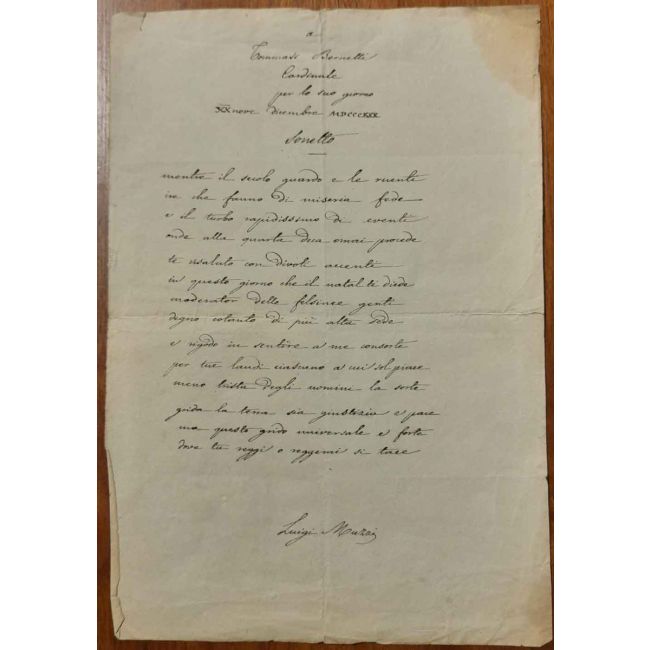 a
Tommaso Bernetti
Cardinale
per lo suo giorno
XXnove dicembre MDCCCXXX
Sonetto
mentre il secolo guardo e le ruenti
ire che fanno di miseria fede
e il turbo rapidissimo di eventi
onde alla quarta dea omai procede
te risaluto con divoti accenti
in questo giorno che il natal te diede
moderator delle felsinee genti
degno cotanto di più alta sede
e rigodo in sentire a me consorte
per tue laudi ciascuno a cui sol piace
meno trista degli uomini la sorte
grida la terra sia giustizia e pace
ma questo grido universale e forte
dove tu reggi o reggerai si tace
Luigi Muzzi